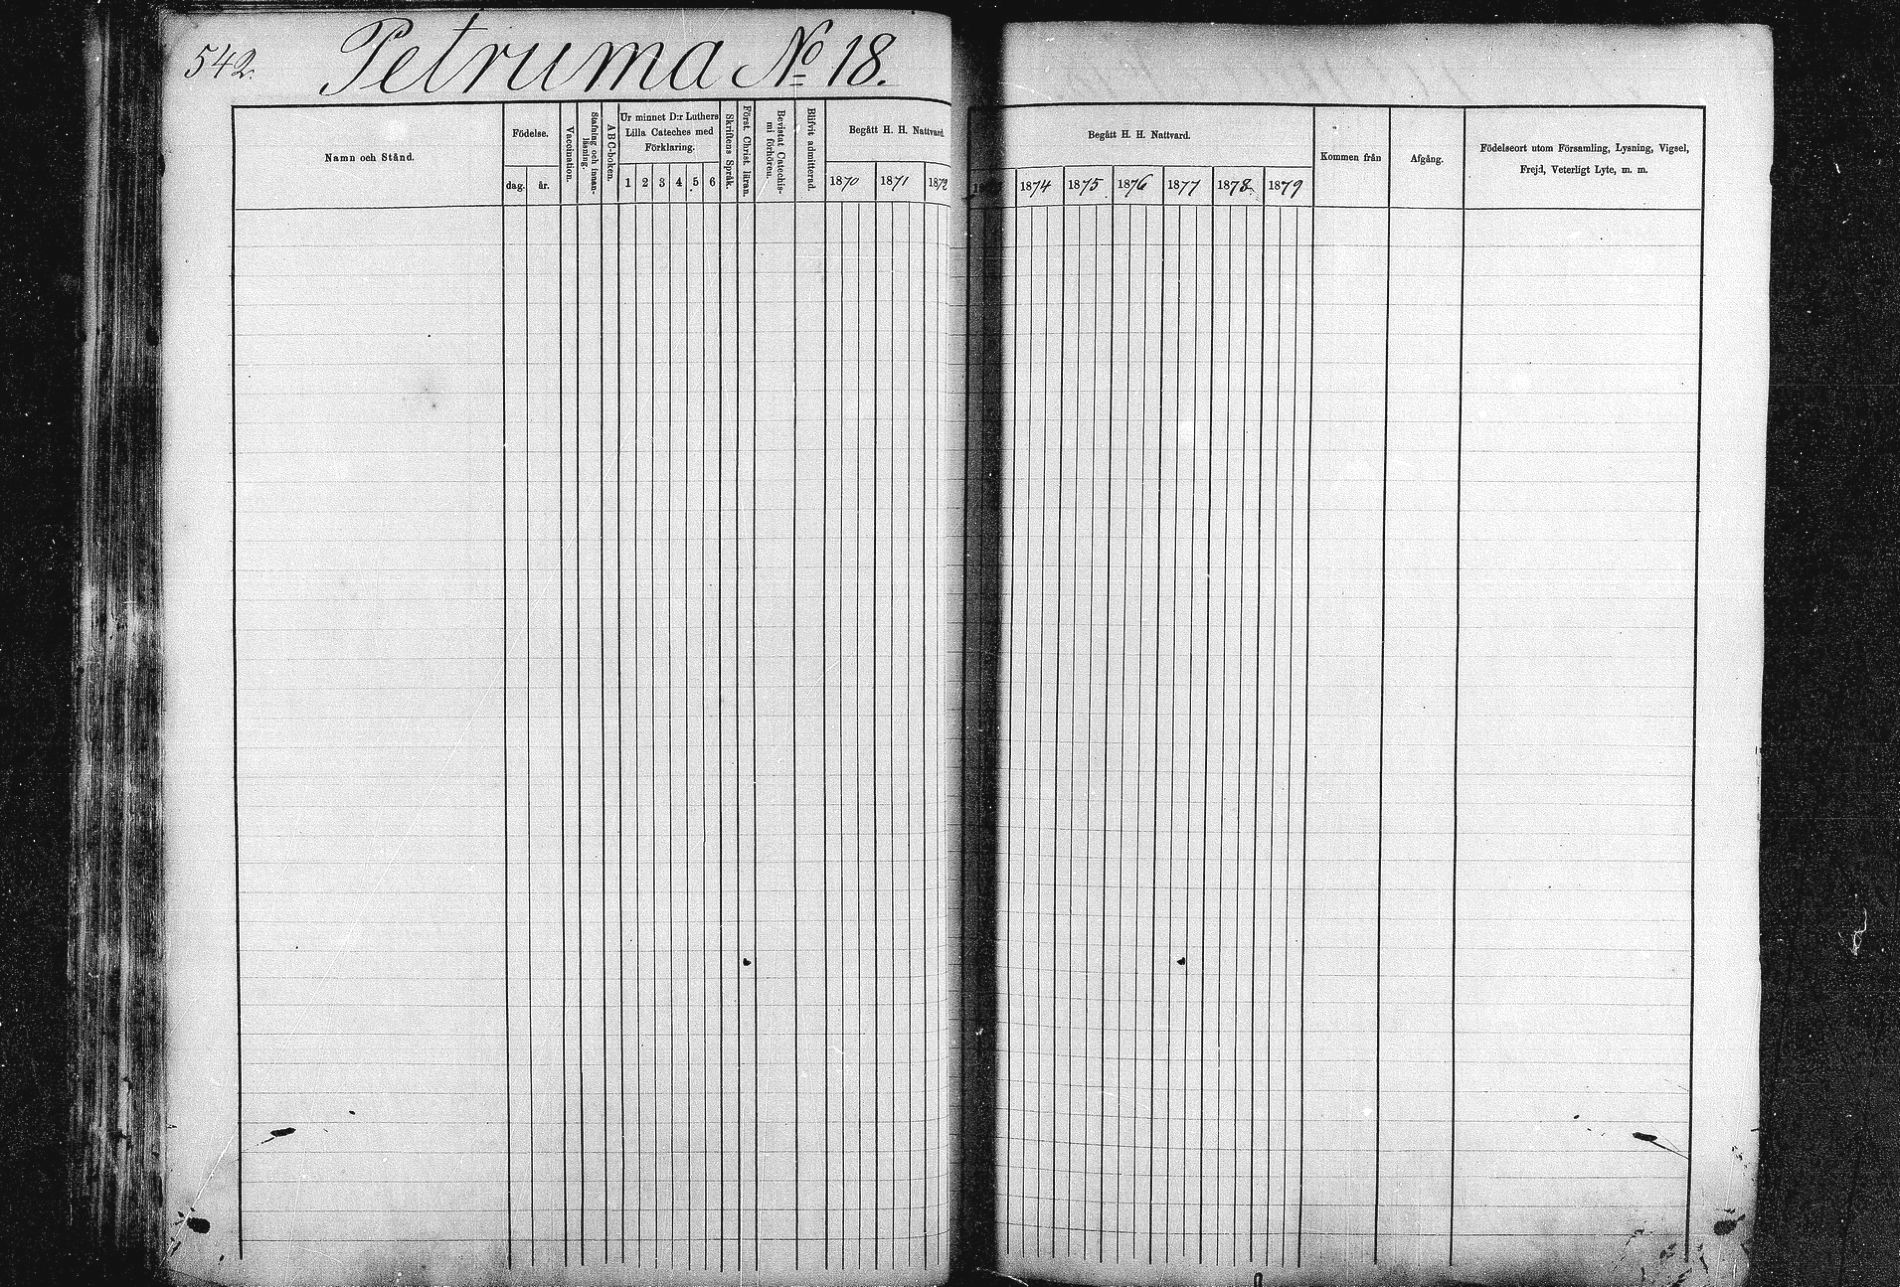 542.
Petruma No 18.
Namn och Stånd.
Födelse.
dag.
år.
Vaccination.
Stafning och innan-
läsning.
ABC-boken.
Ur minnet D:r Luthers
Lilla Cateches med
Förklaring.
1 2 3 4 5 6
Skriftens Språk.
Först. Christ. läran.
Bevistat Catechis-
mi förhören.
Blifvit admitterad.
Begått H. H. Nattvard.
1870 1871 1872
Begått H. H. Nattvard.
1874 1875 1876 1877 1878 1879
Kommen från
Afgång.
Födelseort utom Församling, Lysning, Vigsel,
Frejd, Veterligt Lyte, m. m.